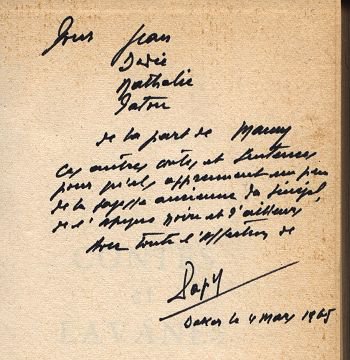 Pour Jean
Nathalie
de la part de Mamy
Ces autres contes et sentences
pour qu'ils apprennent un peu
de la sagesse ancienne du Sénégal,
de l'Afrique noire et d'ailleurs
Avec toute l'affection de
Papy
Dakar le 4 Mars 1965